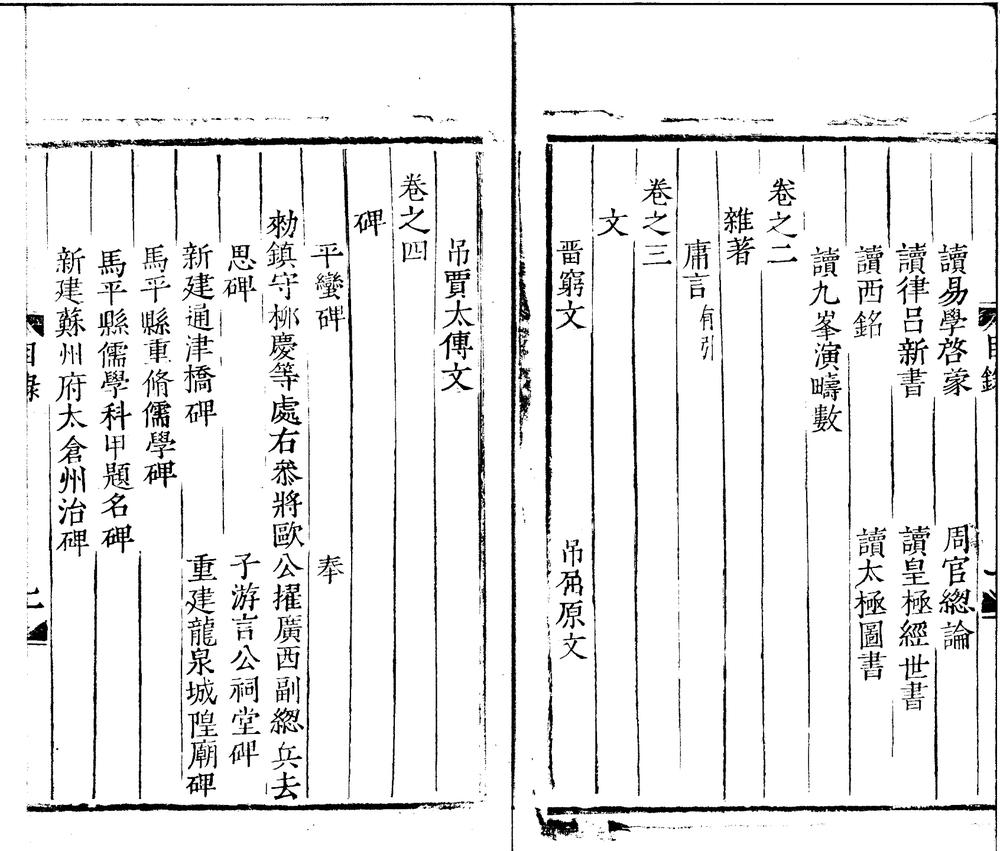 目錄
讀易學啓蒙　周官總論
讀律呂新書　讀皇極經世書
讀西銘　讀太極圖書
讀九峯演疇數
卷之二
雜著
庸言有引
卷之三
文
詈窮文　吊屈原文
吊賈太傅文
卷之四
碑
平蠻碑　奉
勑鎮守桞慶等處右叅將歐公擢廣西副總兵去
思碑　子游言公祠堂碑
新建通津橋碑　重建龍泉城隍廟碑
馬平縣重脩儒學碑
馬平縣儒學科甲題名碑
新建蘇州府太倉州治碑
目錄